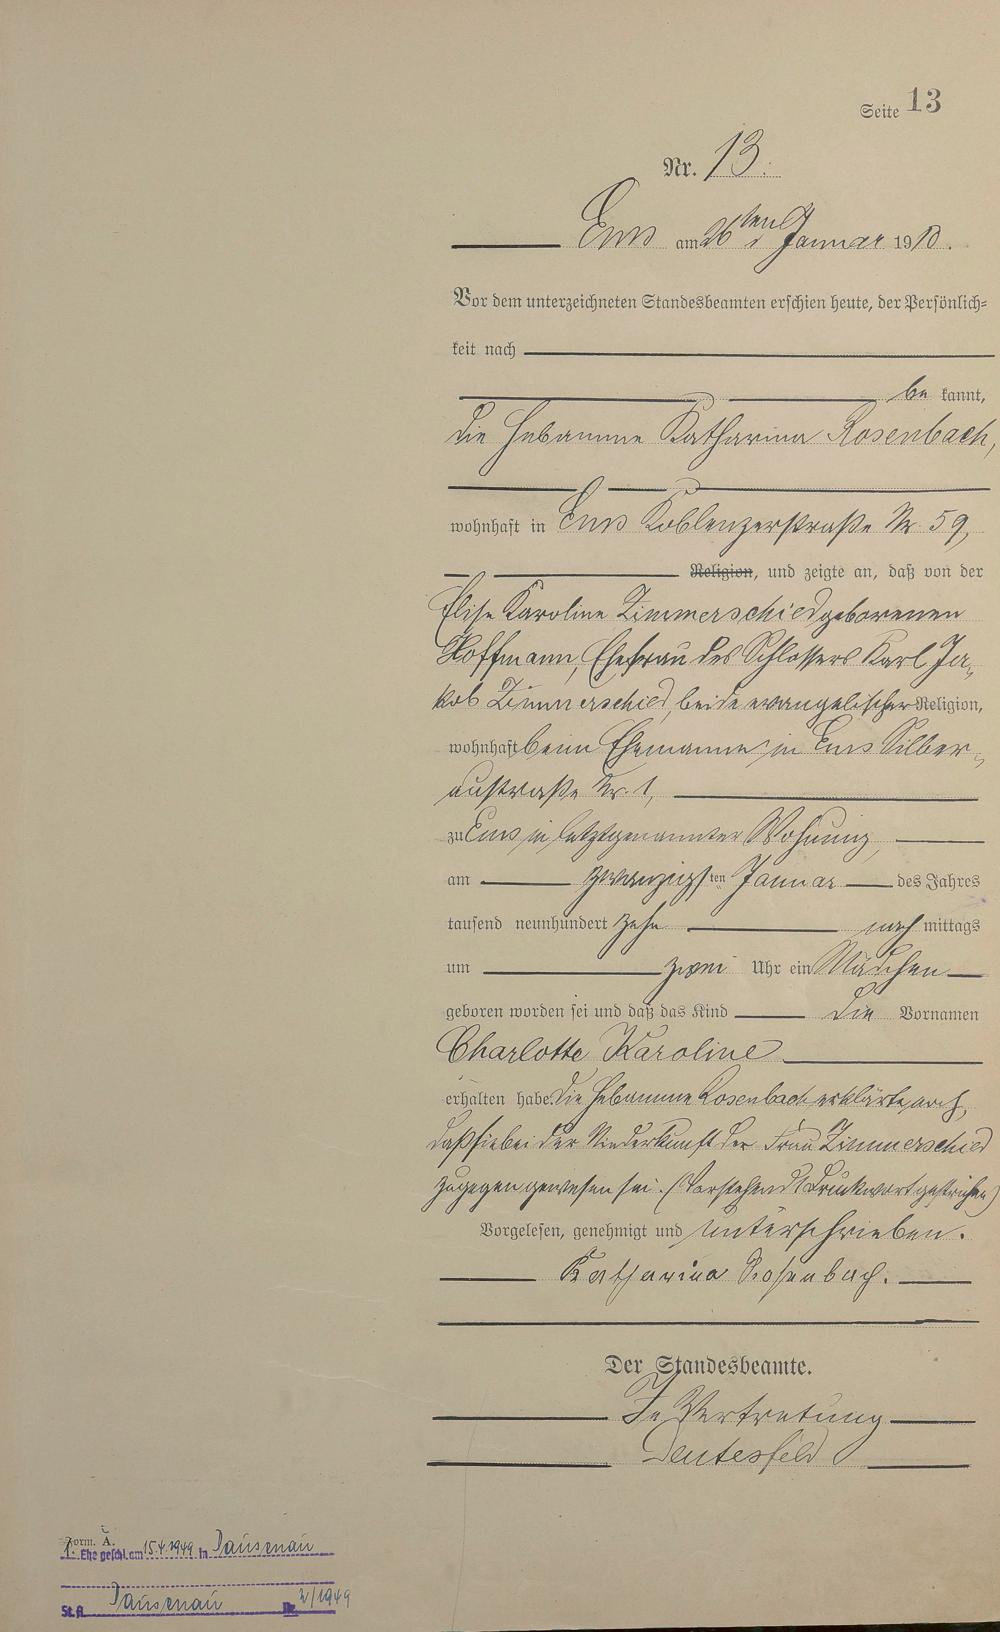 Seite 13
Nr. 13.
Ems am 26ten Januar 1910.
Vor dem unterzeichneten Standesbeamten erschien heute, der Persönlich=
keit nach
be kannt,
die Hebamme Katharina Rosenbach,
wohnhaft in Ems Koblenzerstraße Nr. 59,
Religion, und zeigte an, daß von der
Elise Karoline Zimmerschied geborenen
Hoffmann, Ehefrau des Schlossers Karl Ja-
kob Zimmerschied, beide evangelischer Religion,
wohnhaft beim Ehemanne in Ems Silber-
austraße Nr. 1,
zu Ems in letztgenannter Wohnung,
am zwanzigsten Januar des Jahres
tausend neunhundert zehn nach mittags
um zwei Uhr ein Mädchen
geboren worden sei und daß das Kind die Vornamen
Charlotte Karoline
erhalten habe. Die Hebamme Rosenbach erklärte noch,
daß sie bei der Niederkunft der Frau Zimmerschied
zugegen gewesen sei. (Vorstehend 1 Druckwort gestrichen)
Vorgelesen, genehmigt und unterschrieben.
Katharina Rosenbach.
Der Standesbeamte.
In Vertretung
Form. A.
1. Ehe geschl. am 15.4.1949 in Dausenau
St. A. Dausenau Nr. 2/1949